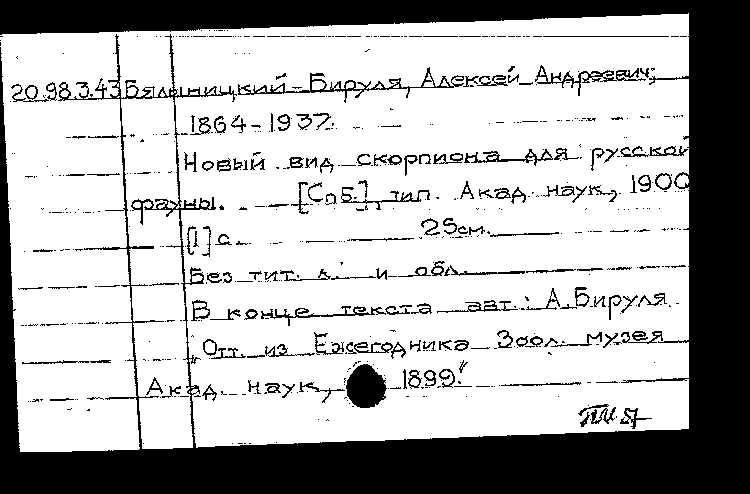 20.98.3.43 Бялыницкий-Бируля, Алексей Андреевич;
1864-1937.
Новый вид скорпиона для русской
фауны. [Спб.], тип. Акад. наук, 1900
[1] с. 25см.
Без тит. л. и обл.
В конце текста авт.: А.Бируля
„Отт. из Ежегодника Зоол. музея
Акад. наук, 1899."